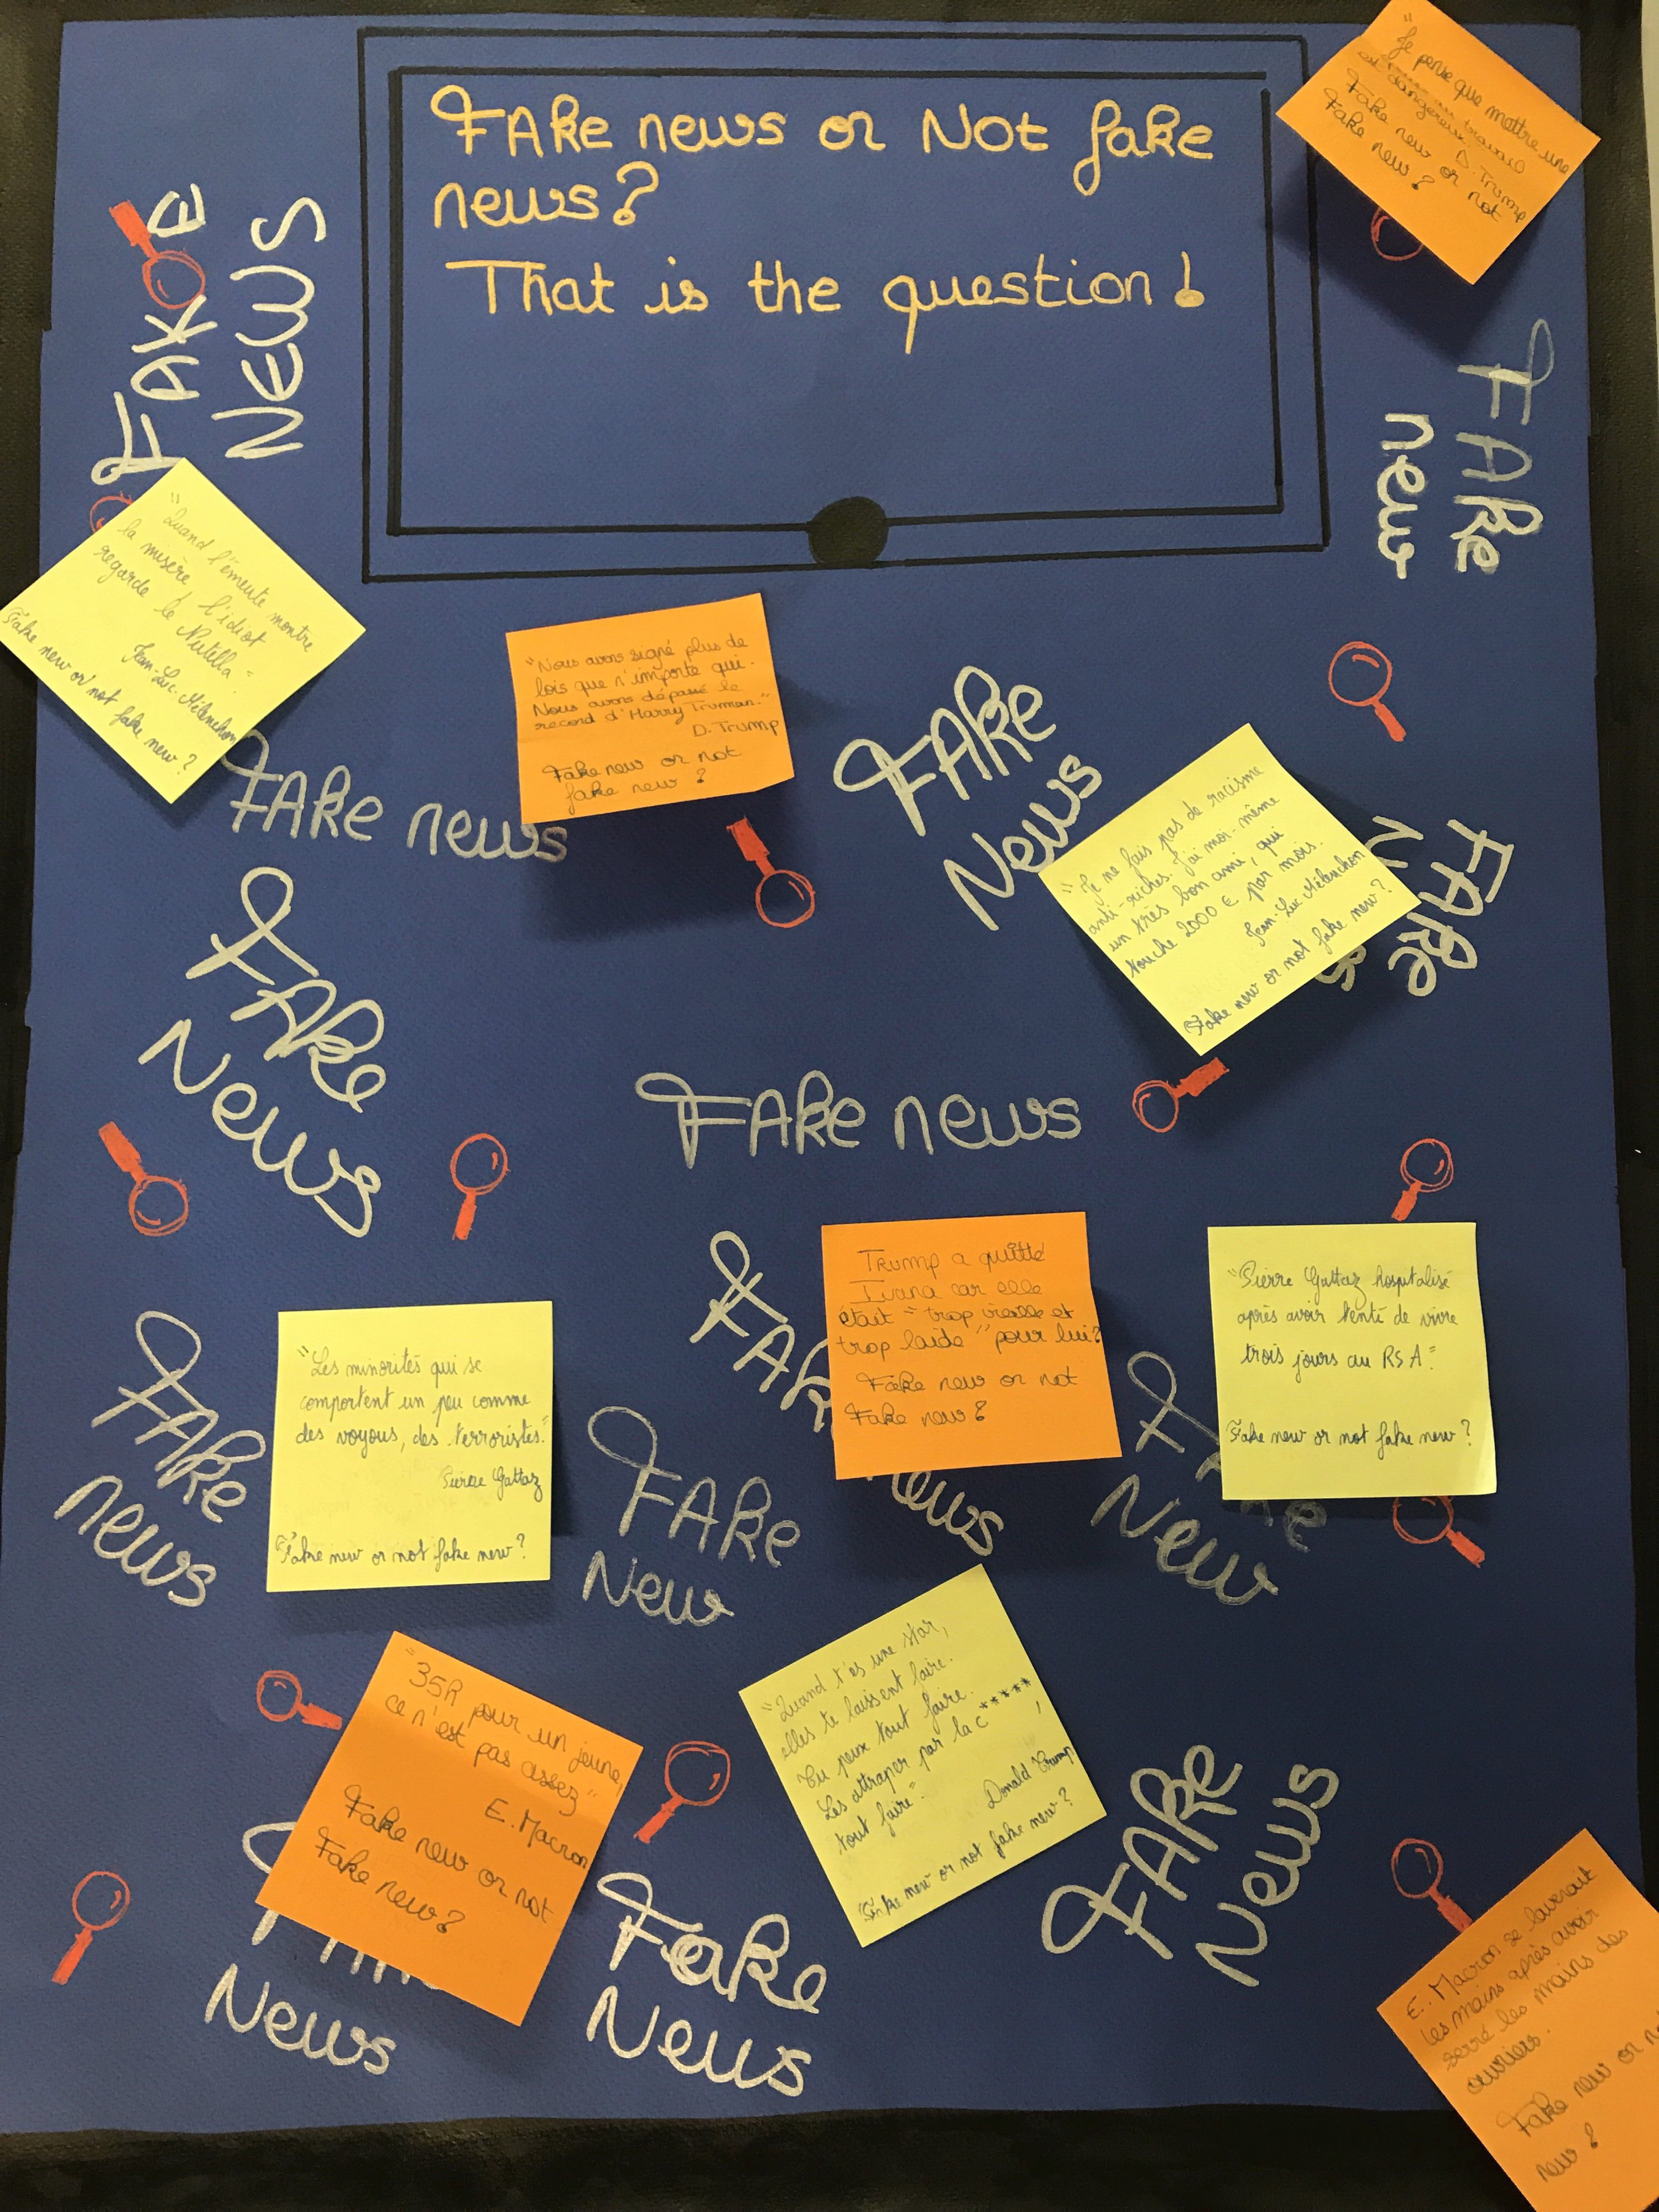 FAke news or Not fake
news?
That is the question!
"Je pense que mettre une
au travail
est dangereux." D. Trump
Fake new or not
Fake new?
FAKE
NEWS
FAke
new
"Quand l'émeute montre
la misère l'idiot
regarde le Nutella"
Jean-Luc Mélenchon
Fake new or not fake new?
"Nous avons signé plus de
lois que n'importe qui.
Nous avons dépassé le
record d'Harry Truman."
D. Trump
Fake new or not
fake new?
FAke news
FAke
News
"Je ne fais pas de racisme
anti-riches. J'ai moi-même
un très bon ami, qui
touche 2000 € par mois.
Jean-Luc Mélenchon
Fake new or not fake new?
FAke
FAke
News
FAke news
FAke
news
"Les minorités qui se
comportent un peu comme
des voyous, des terroristes."
Pierre Gattaz
Fake new or not fake new?
FAke
New
FAk
news
Trump a quitté
Ivana car elle
était "trop vieille et
trop laide" pour lui?
Fake new or not
Fake new?
"Pierre Gattaz hospitalisé
après avoir tenté de vivre
trois jours au RSA"
Fake new or not fake new?
New
"35h pour un jeune,
ce n'est pas assez"
E. Macron
Fake new or not
Fake new?
News
"Quand t'es une star,
elles te laissent faire.
Tu peux tout faire.
Les attraper par la c*****,
tout faire".
Donald Trump
Fake new or not fake new?
Fake
News
FAke
News
E. Macron se laverait
les mains après avoir
serré les mains des
ouvriers.
Fake new or no
new?